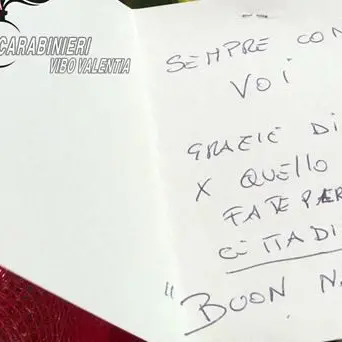 CARABINIERI
VIBO VALENTIA
SEMPRE CON
VOI
GRAZIE DI
X QUELLO
FATE PER
CITTADI
"BUON N